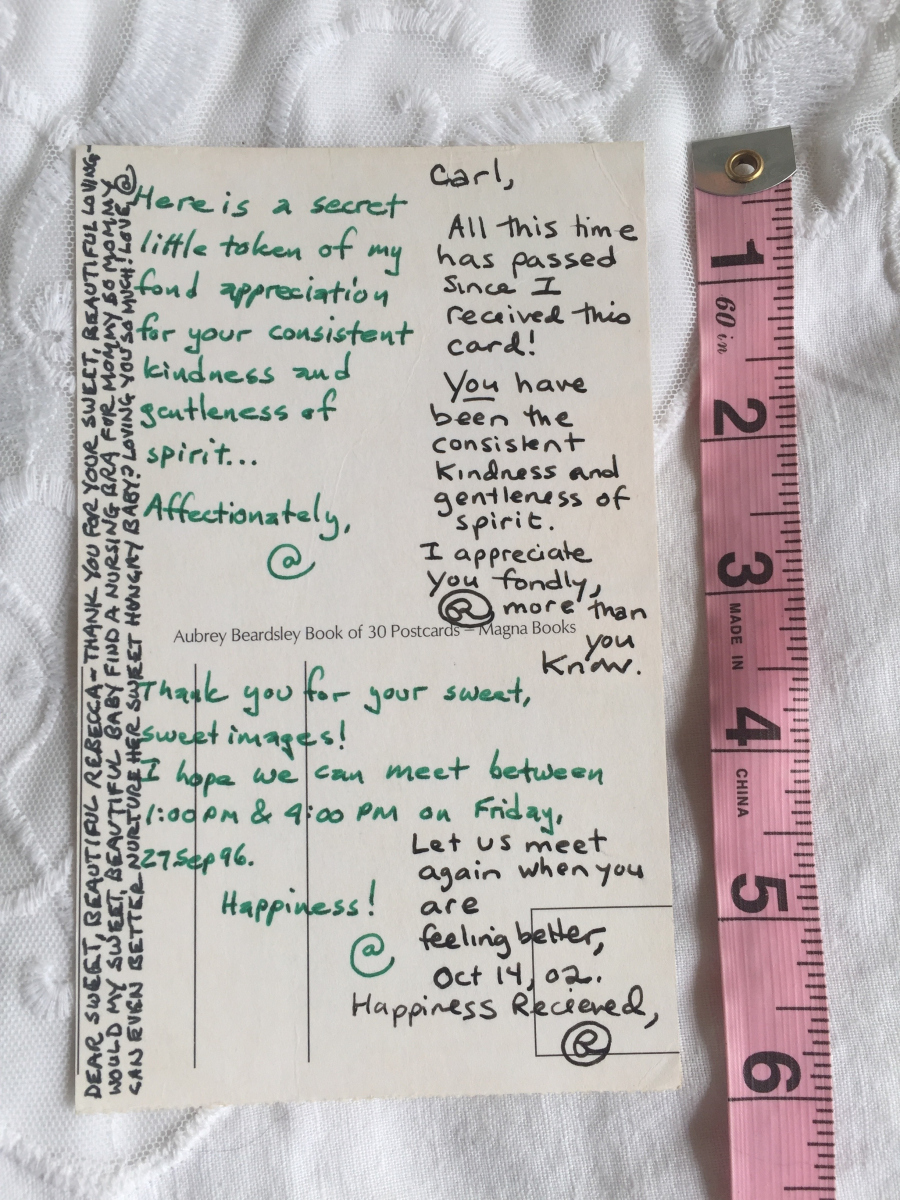 Here is a secret
little token of my
fond appreciation
for your consistent
kindness and
gentleness of
spirit...
Affectionately,
@
Carl,
All this time
has passed
Since I
received this
card!
You have
been the
consistent
Kindness and
gentleness of
spirit.
I appreciate
you fondly,
R more than
you
Know.
Aubrey Beardsley Book of 30 Postcards – Magna Books
Thank you for your sweet,
sweet images!
I hope we can meet between
1:00 PM & 4:00 PM on Friday,
27 Sep 96.
Happiness!
@
Let us meet
again when you
are
feeling better,
Oct 14, 02.
Happiness Recieved,
R
DEAR SWEET, BEAUTIFUL REBECCA – THANK YOU FOR YOUR SWEET, BEAUTIFUL LOVING –
WOULD MY SWEET, BEAUTIFUL BABY FIND A NURSING BRA FOR MOMMY SO MOMMY
CAN EVEN BETTER NURTURE HER SWEET HUNGRY BABY? LOVING YOU SO MUCH! LOVE, @
1
60 in
2
3
MADE IN
4
CHINA
5
6